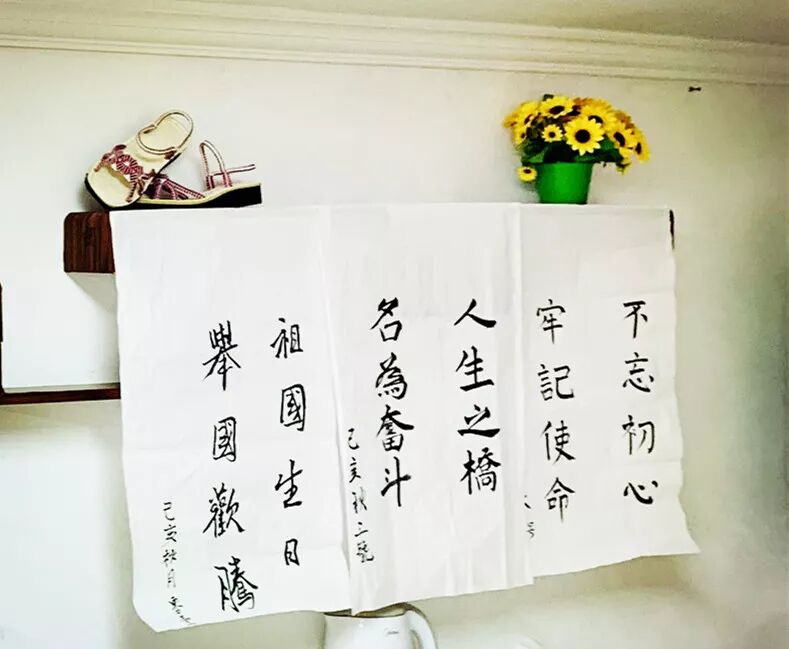 不忘初心
牢記使命
号
人生之橋
名為奮斗
己亥秋三號
祖國生日
舉國歡騰
己亥秋月